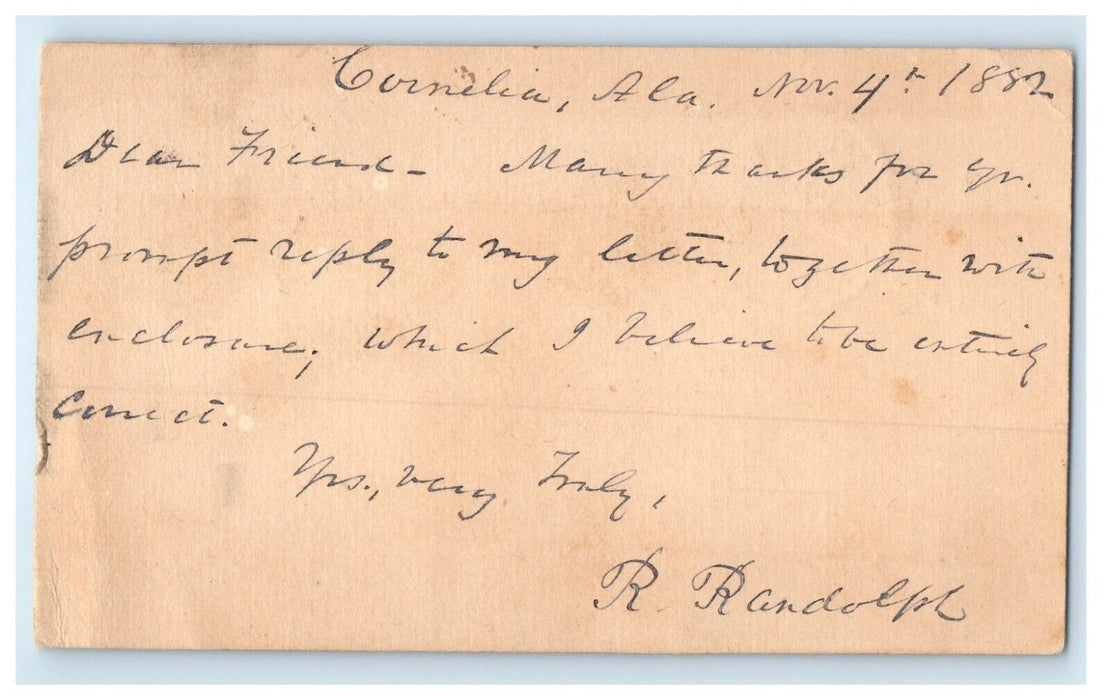 Cornelia, Ala. Nov. 4th 1882
Dear Friend - Many thanks for yr.
prompt reply to my letter, together with
enclosure; which I believe to be entirely
correct.
Yrs., very Truly,
R. Randolph